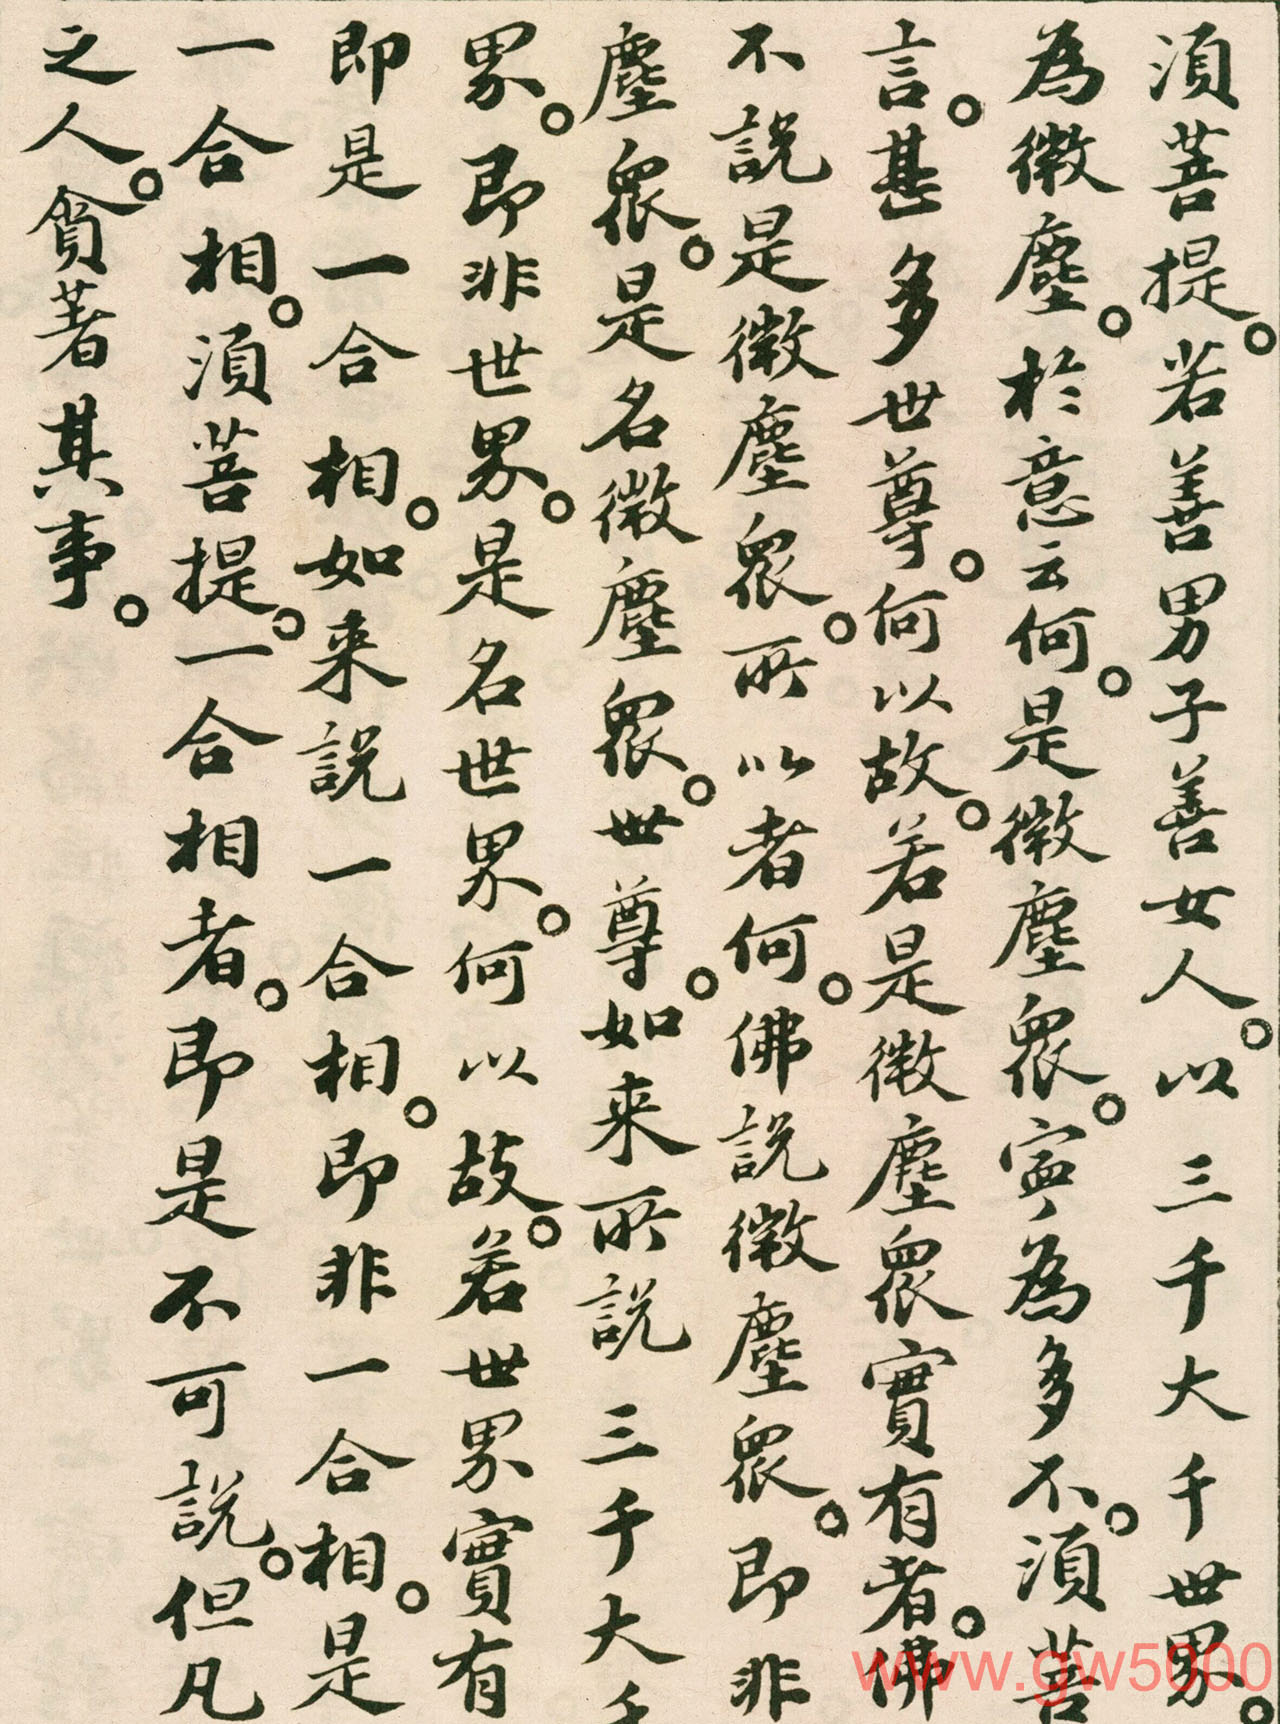 須菩提。若善男子善女人。以三千大千世界。
為微塵。於意云何。是微塵眾。寧為多不。須菩
言。甚多世尊。何以故。若是微塵眾實有者。佛
不說是微塵眾。所以者何。佛說微塵眾。即非
塵眾。是名微塵眾。世尊。如来所說三千大千
界。即非世界。是名世界。何以故。若世界實有
即是一合相。如来說一合相。即非一合相。是
一合相。須菩提。一合相者。即是不可說。但凡
之人。貪著其事。
www.gw5000